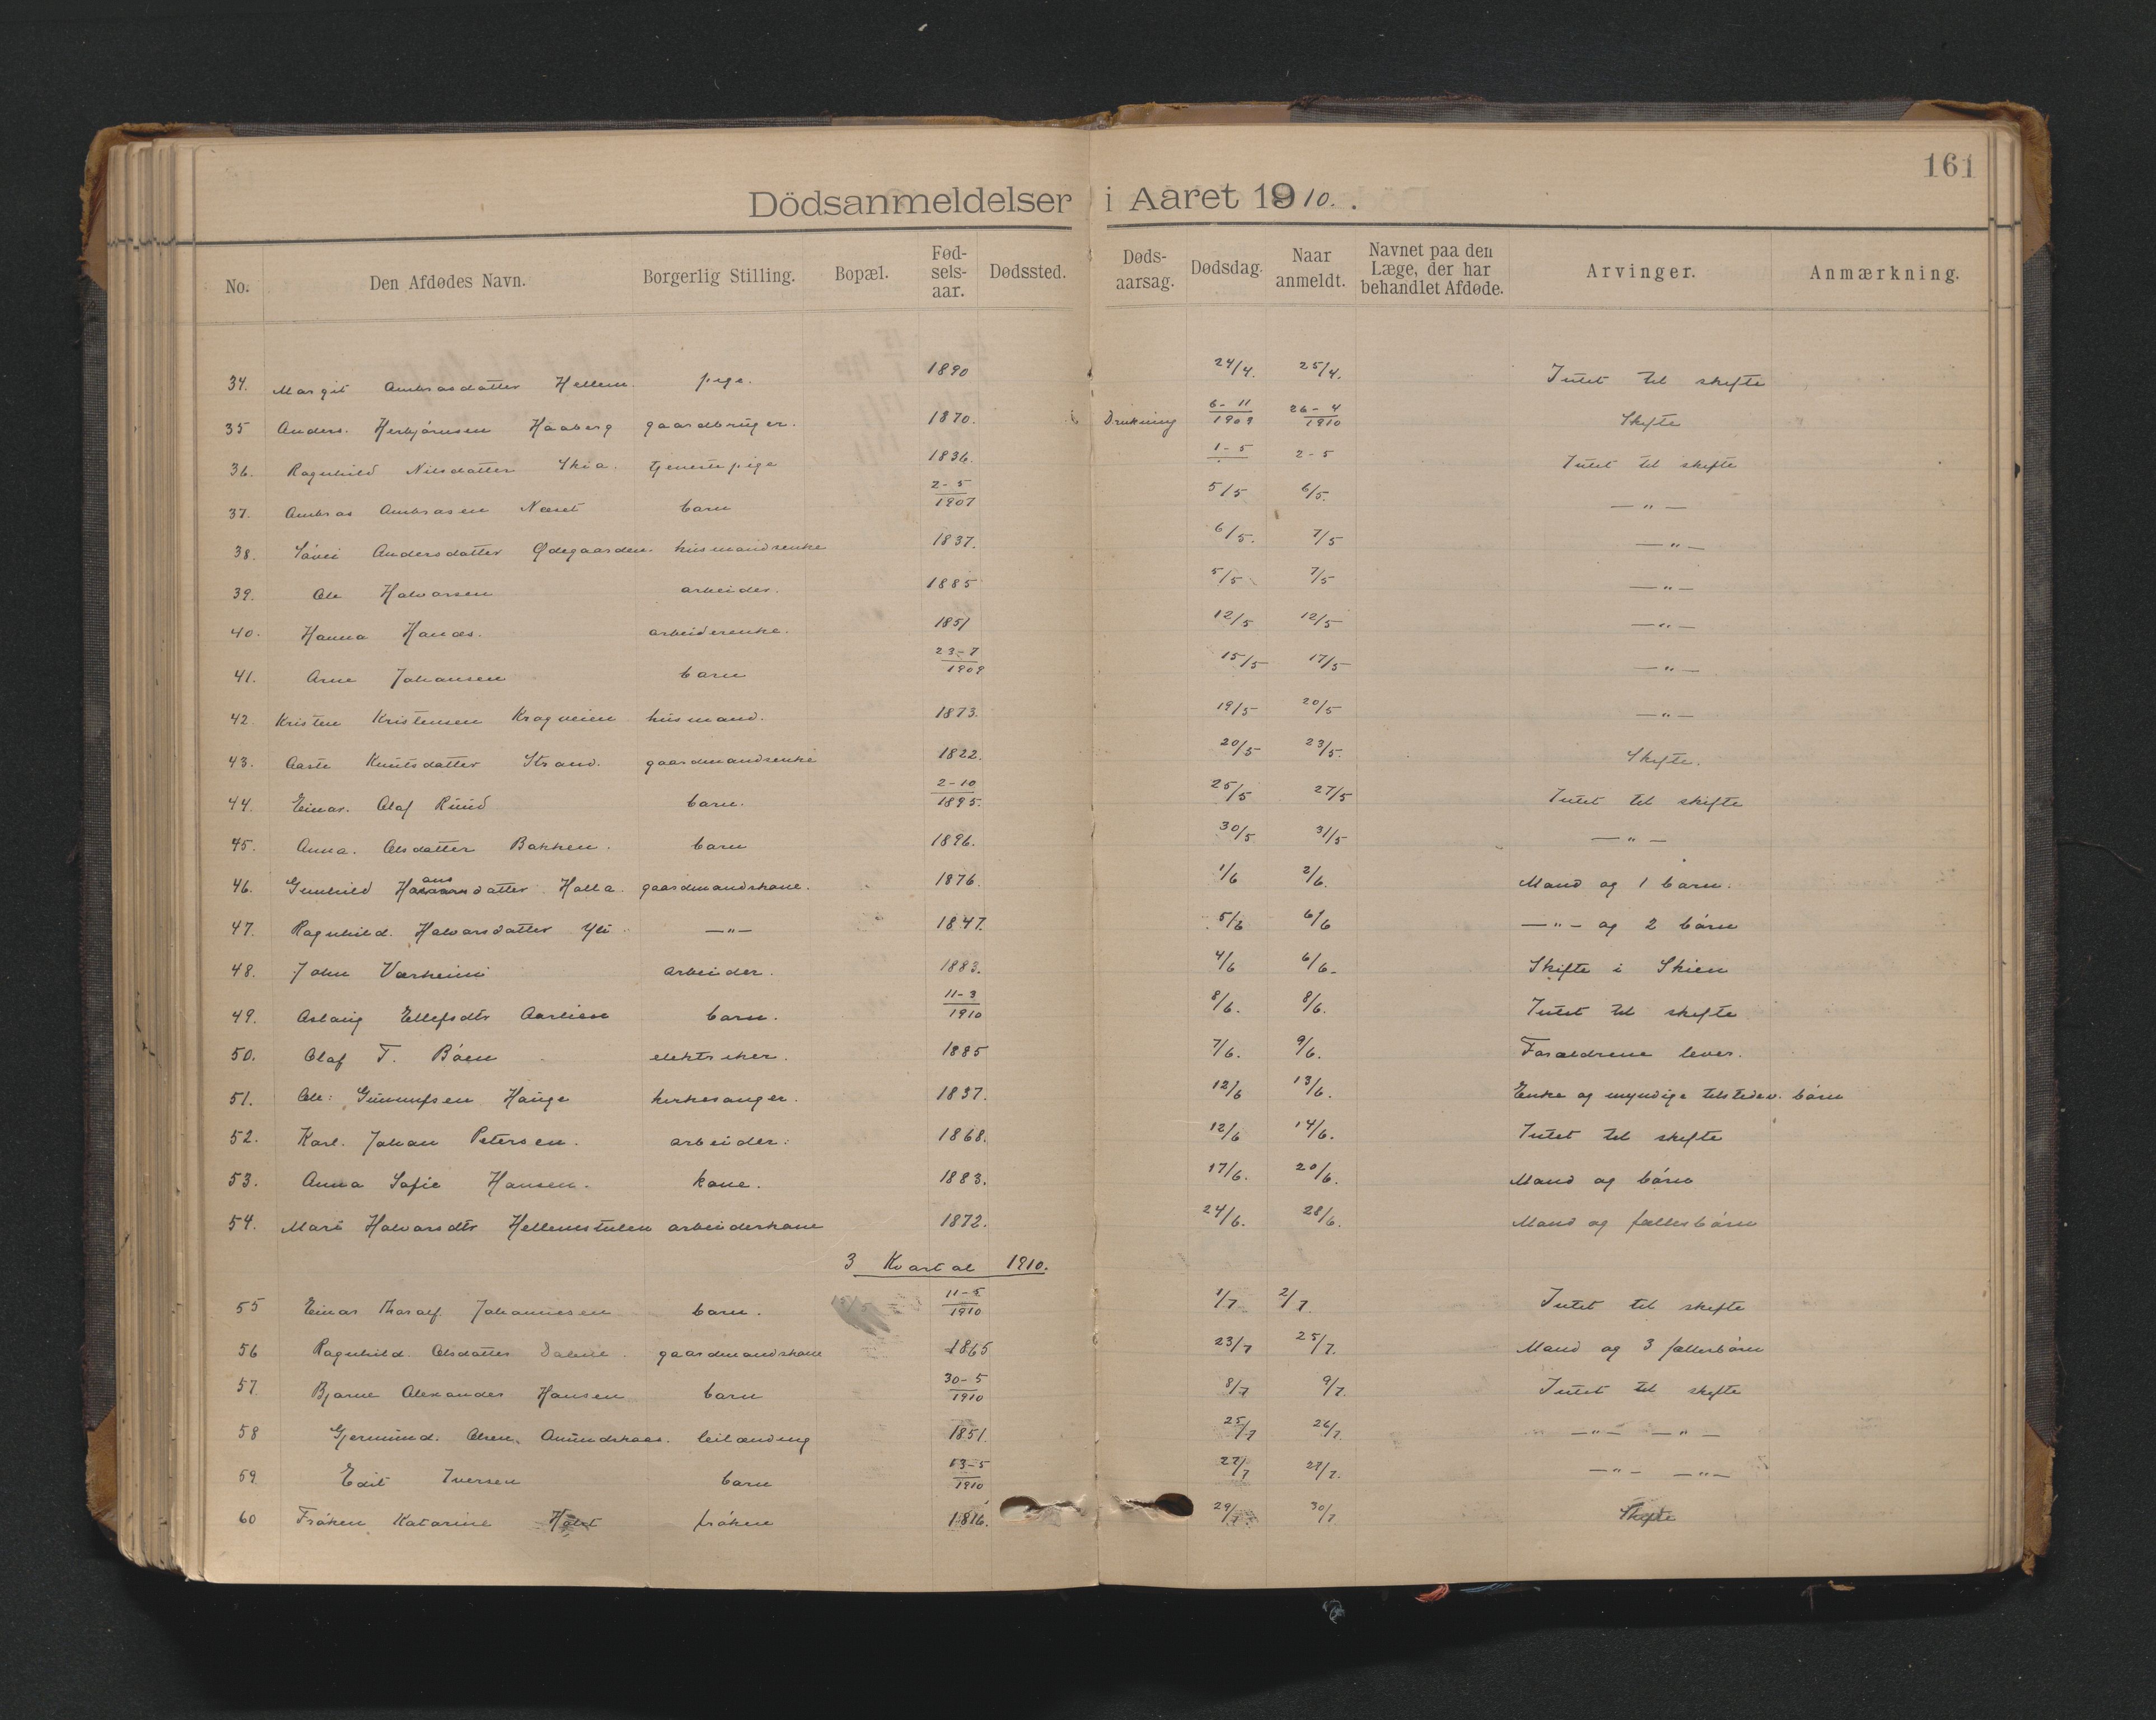 161
Dödsanmeldelser i Aaret 1910.
No. Den Afdødes Navn. Borgerlig Stilling. Bopæl. Fød-sels-aar. Dødssted. Døds-aarsag. Dødsdag. Naar anmeldt. Navnet paa den Læge, der har behandlet Afdøde. Arvinger. Anmærkning.
34. Margit Ambrosdatter Hellem. pige. 1890 24/4. 25/4. Intet til skifte
35 Anders. Herbjørnsen Haaberg gaardbruger. 1870. Drukning 6-11 1909 26-4 1910 Skifte
36. Ragnhild Nilsdatter Skia. tjenestepige 1836. 1-5 2-5 Intet til skifte
37. Ambros Ambrosen Næset barn 2-5 1907 5/5 6/5. —"—
38. Andersdatter Ødegaarden. husmandsenke 1837. 6/5. 7/5 —"—
39. Ole Halvorsen arbeider. 1885 5/5 7/5 —"—
40. Hanna arbeiderenke. 1851 12/5 12/5 —"—
41. Arne Johansen barn 23-7 1909 15/5 17/5 —"—
42 Kristen Kristensen Kragveien husmand. 1873. 19/5 20/5 —"—
43. Aaste Knutsdatter Strand. gaardmandsenke 1822. 20/5 23/5. Skifte.
44. Einar. Olaf Ruud barn. 2-10 1895. 25/5 27/5 Intet til skifte
45. Anna. Olsdatter Bakken. barn 1896. 30/5 31/5 —"—
46. Gunhild Hansdatter Holla. gaardmandskone. 1876. 1/6 2/6. Mand og 1 barn.
47. Ragnhild. Halvorsdatter Yli —"— 1847. 5/6 6/6 —"— og 2 børn
48. John Værheim arbeider. 1883. 4/6 6/6- Skifte i Skien
49. Aslaug Ellefsdtr Aarlien barn. 11-3 1910 8/6. 8/6. Intet til skifte
50. Olaf T. Bøen elektriker. 1885 7/6. 9/6. Forældrene lever.
51. Ole: Gunnufsen Hauge kirkesanger. 1837. 12/6 13/6. Enke og myndige tilstedev. børn
52. Karl. Johan Petersen. arbeider: 1868. 12/6 14/6. Intet til skifte
53. Anna Sofie Hansen. kone. 1883. 17/6. 20/6. Mand og børn
54. Mari Halvorsdtr Hellemstulen arbeiderkone 1872. 24/6. 28/6. Mand og fællesbørn
3 Kvartal 1910.
55 Einar Thoralf. Johannesen barn. 11-5 1910 1/7 2/7. Intet til skifte
56 Ragnhild. Olsdatter Dalene. gaardmandskone 1865 23/7 25/7. Mand og 3 fællesbørn
57. Bjarne Alexander Hansen barn 30-5 1910 8/7 9/7. Intet til skifte
58 Gjermund. Olsen. leilænding 1851. 25/7 26/7. —"— —"—
59 Edit Iversen barn 13-5 1910 27/7 27/7. —"— —"—
60 Frøken Katarine Holst frøken 1816. 29/7 30/7 Skifte